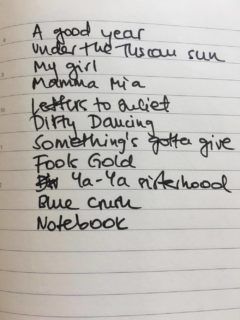 A good year
Under the Tuscan sun
My girl
Mamma Mia
Letters to Juliet
Dirty Dancing
Something's gotta give
Fools Gold
Ya-Ya sisterhood
Blue crush
Notebook